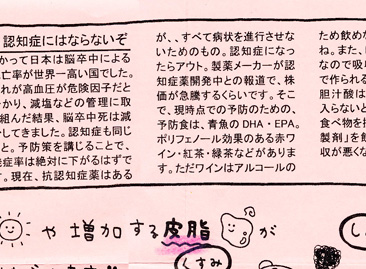 認知症にはならないぞ
かつて日本は脳卒中による
亡率が世界一高い国でした。
れが高血圧が危険因子だと
かり、減塩などの管理に取
組んだ結果、脳卒中死は減
してきました。認知症も同じ
と。予防策を講じることで、
症率は絶対に下がるはずで
す。現在、抗認知症薬はある
が、、すべて病状を進行させな
いためのもの。認知症になっ
たらアウト。製薬メーカーが認
知症薬開発中との報道で、株
価が急騰するくらいです。そこ
で、現時点での予防のための、
予防食は、青魚のDHA・EPA。
ポリフェノール効果のある赤ワ
イン・紅茶・緑茶などがありま
す。ただワインはアルコールの
ため飲めな
ね。また、
なので吸収
で作られる
胆汁酸は
入らないと
食べ物を摂
製剤」を飲
収が悪くな
や増加する皮脂が
くすみ